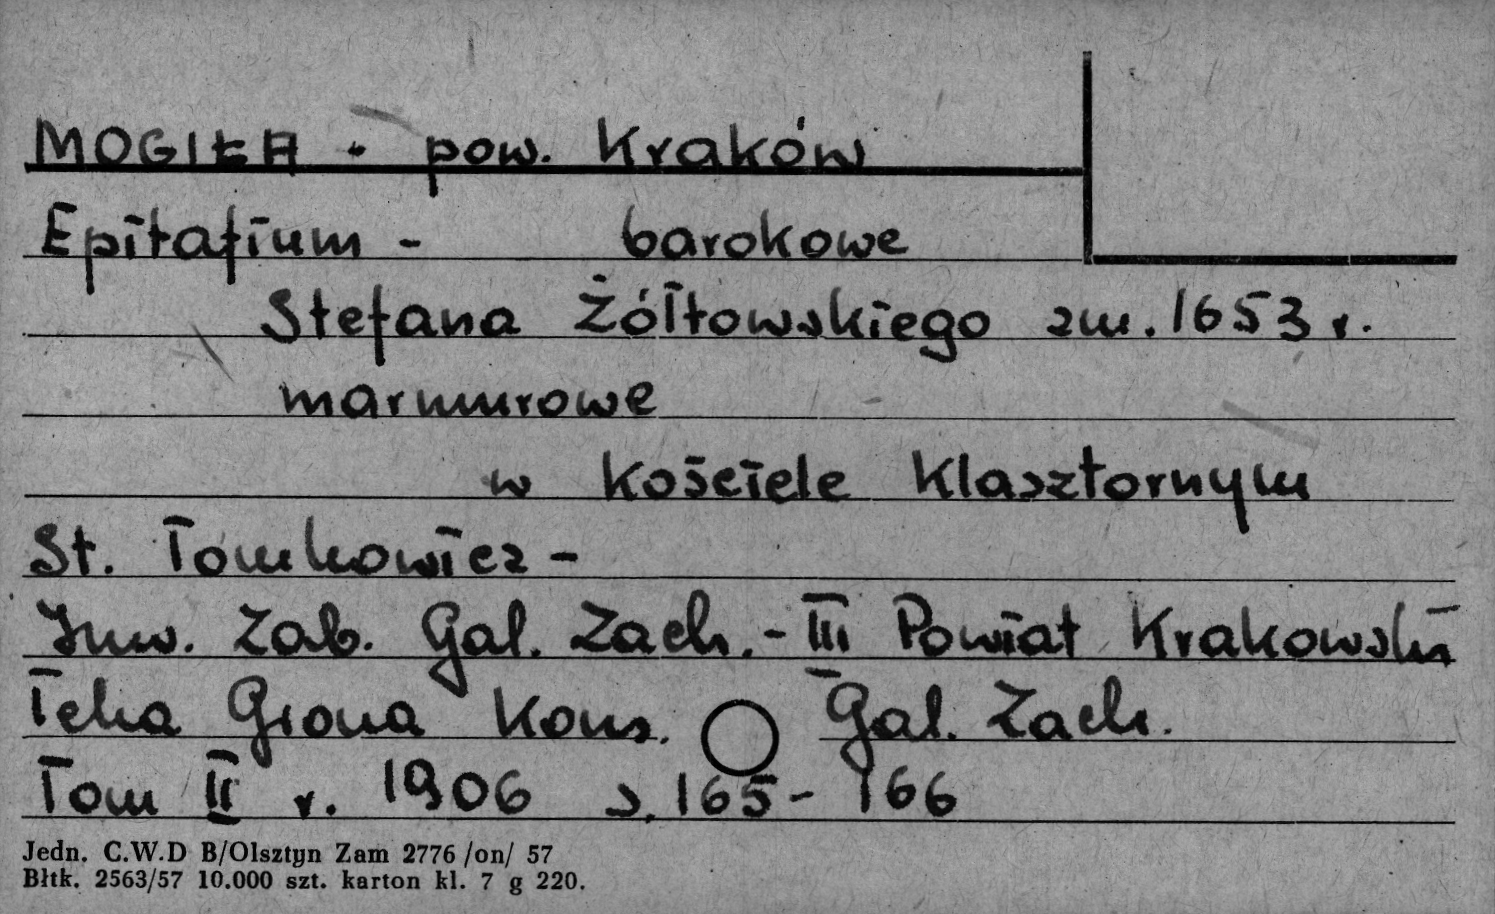 MOGIŁA - pow. Kraków
Epitafium - barokowe
Stefana Żółtowskiego zm. 1653 r.
marmurowe
w Kościele Klasztornym
St. Tomkowicz -
Inw. Zab. Gal. Zach. - III Powiat Krakowski
Teka Grona Kons. Gal. Zach.
Tom II r. 1906 s. 165 - 166
Jedn. C.W.D B/Olsztyn Zam 2776 /on/ 57
Błtk. 2563/57 10.000 szt. karton kl. 7 g 220.